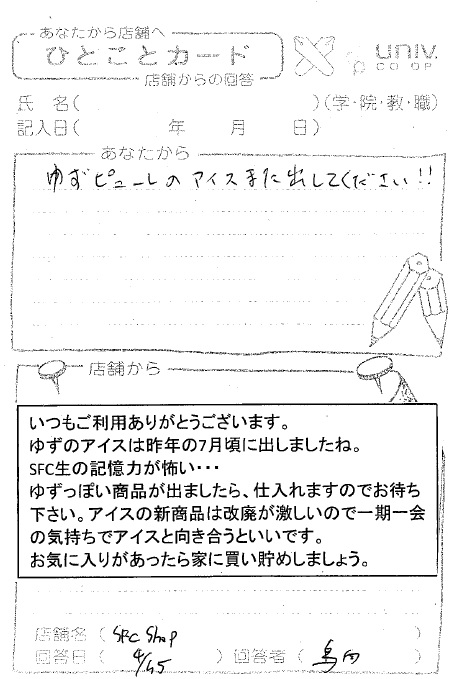 あなたから店舗へ
ひとことカード
店舗からの回答
univ.
CO・OP
氏 名( )(学・院・教・職)
記入日( 年 月 日)
あなたから
ゆずピューレのアイスまた出してください!!
店舗から
いつもご利用ありがとうございます。
ゆずのアイスは昨年の7月頃に出しましたね。
SFC生の記憶力が怖い・・・
ゆずっぽい商品が出ましたら、仕入れますのでお待ち
下さい。アイスの新商品は改廃が激しいので一期一会
の気持ちでアイスと向き合うといいです。
お気に入りがあったら家に買い貯めしましょう。
店舗名(SFC Shop )
回答日( ) 回答者( )